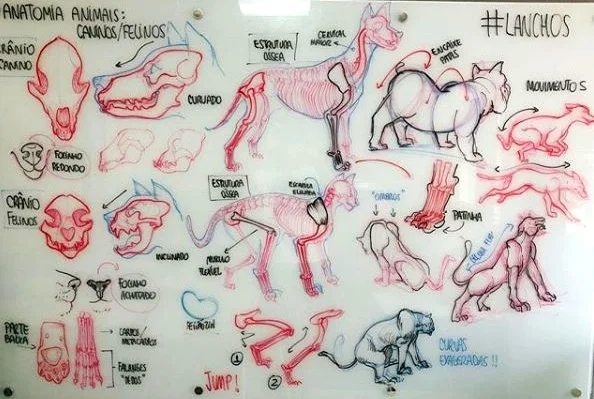 ANATOMIA ANIMAIS:
CANINOS/FELINOS
#LANCHOS
CRÂNIO
CANINO
CURVADO
ESTRUTURA
ÓSSEA
CERVICAL
MAIOR
ENCAIXE
PATAS
MOVIMENTOS
FOCINHO
REDONDO
CRÂNIO
FELINOS
INCLINADO
ESTRUTURA
ÓSSEA
ESCÁPULA
MUITO
FLEXÍVEL
"OMBROS"
PATINHA
FOCINHO
ACHATADO
PARTE
BAIXA
CARPOS/
METACARPOS
FALANGES
"DEDOS"
JUMP!
1
2
CURVAS
EXAGERADAS!!